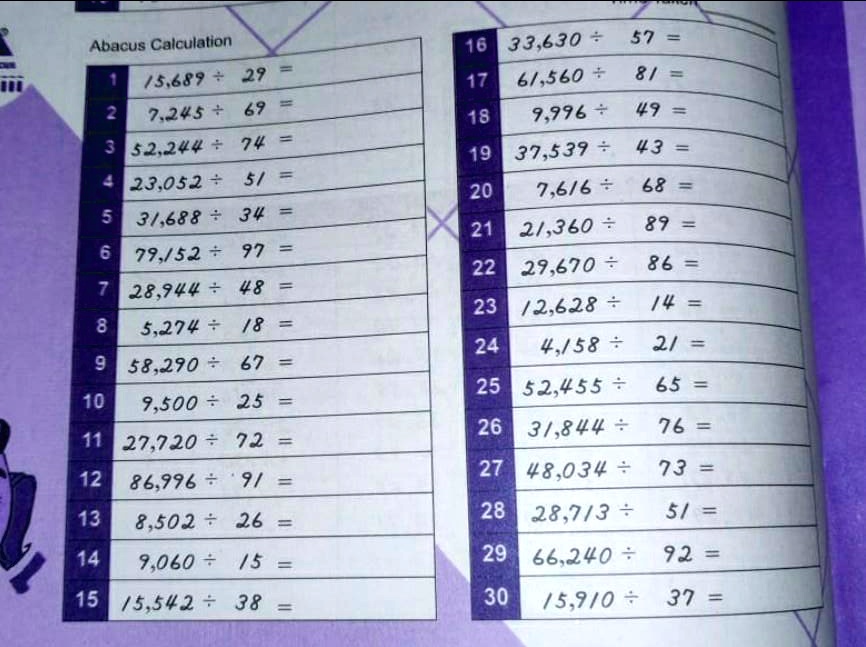 Abacus Calculation
1 15,689 ÷ 29 =
2 7,245 ÷ 69 =
3 52,244 ÷ 74 =
4 23,052 ÷ 51 =
5 31,688 ÷ 34 =
6 79,152 ÷ 97 =
7 28,944 ÷ 48 =
8 5,274 ÷ 18 =
9 58,290 ÷ 67 =
10 9,500 ÷ 25 =
11 27,720 ÷ 72 =
12 86,996 ÷ 91 =
13 8,502 ÷ 26 =
14 9,060 ÷ 15 =
15 15,542 ÷ 38 =
16 33,630 ÷ 57 =
17 61,560 ÷ 81 =
18 9,996 ÷ 49 =
19 37,539 ÷ 43 =
20 7,616 ÷ 68 =
21 21,360 ÷ 89 =
22 29,670 ÷ 86 =
23 12,628 ÷ 14 =
24 4,158 ÷ 21 =
25 52,455 ÷ 65 =
26 31,844 ÷ 76 =
27 48,034 ÷ 73 =
28 28,713 ÷ 51 =
29 66,240 ÷ 92 =
30 15,910 ÷ 37 =